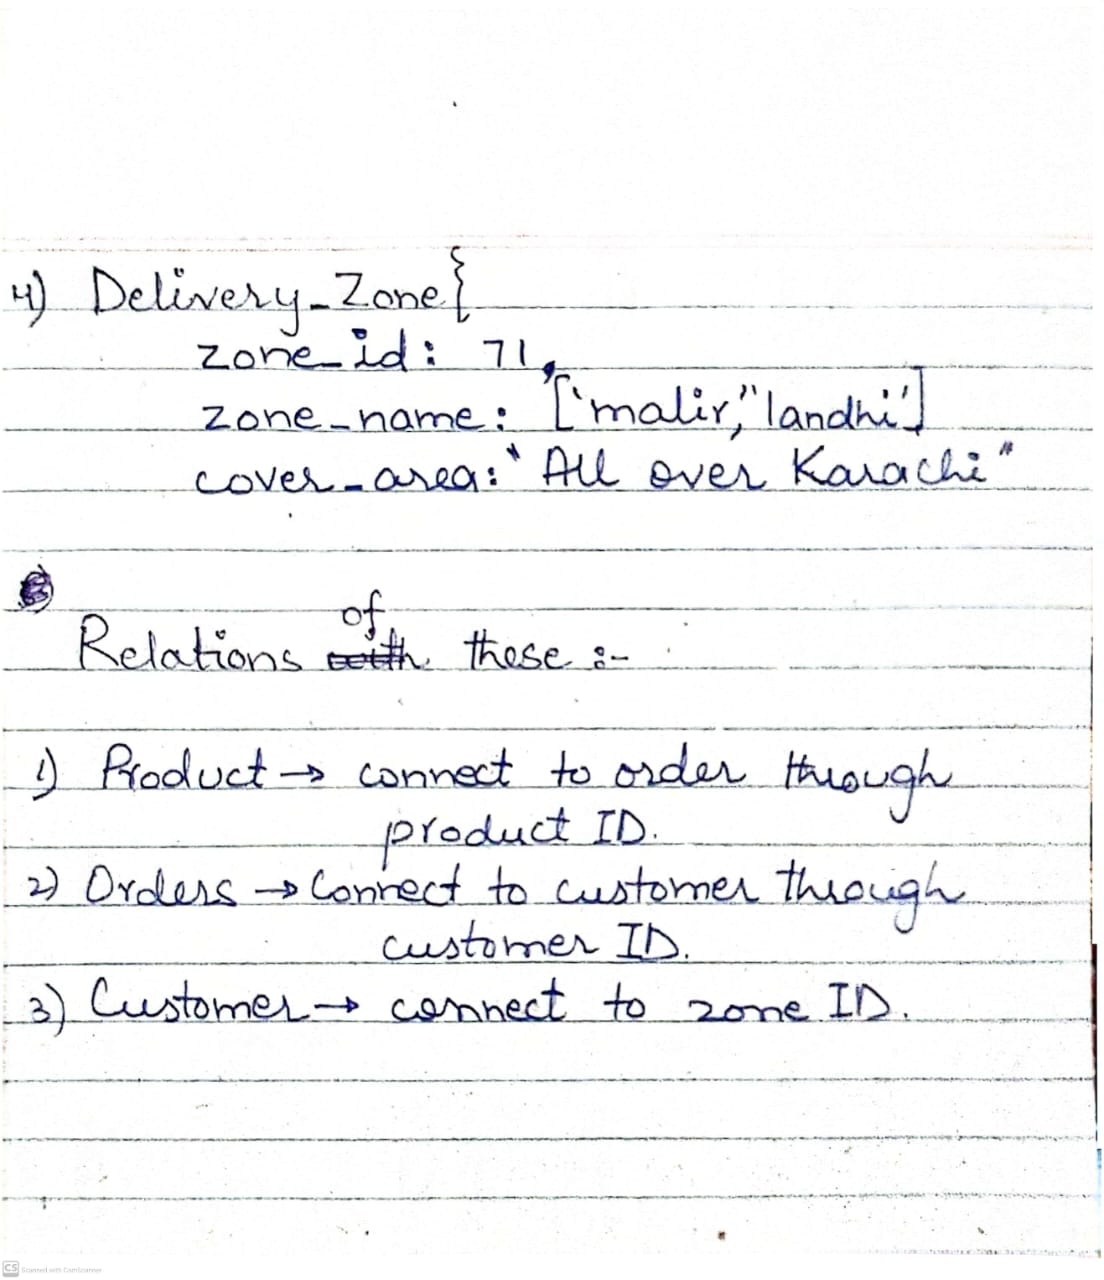 4) Delivery_Zone{
zone_id: 71,
zone_name: ['malir,''landhi']
cover_area: "All over Karachi"
of
Relations with these :-
1) Product → connect to order through
product ID.
2) Orders → Connect to customer through
customer ID.
3) Customer → connect to zone ID.
CS Scanned with CamScanner